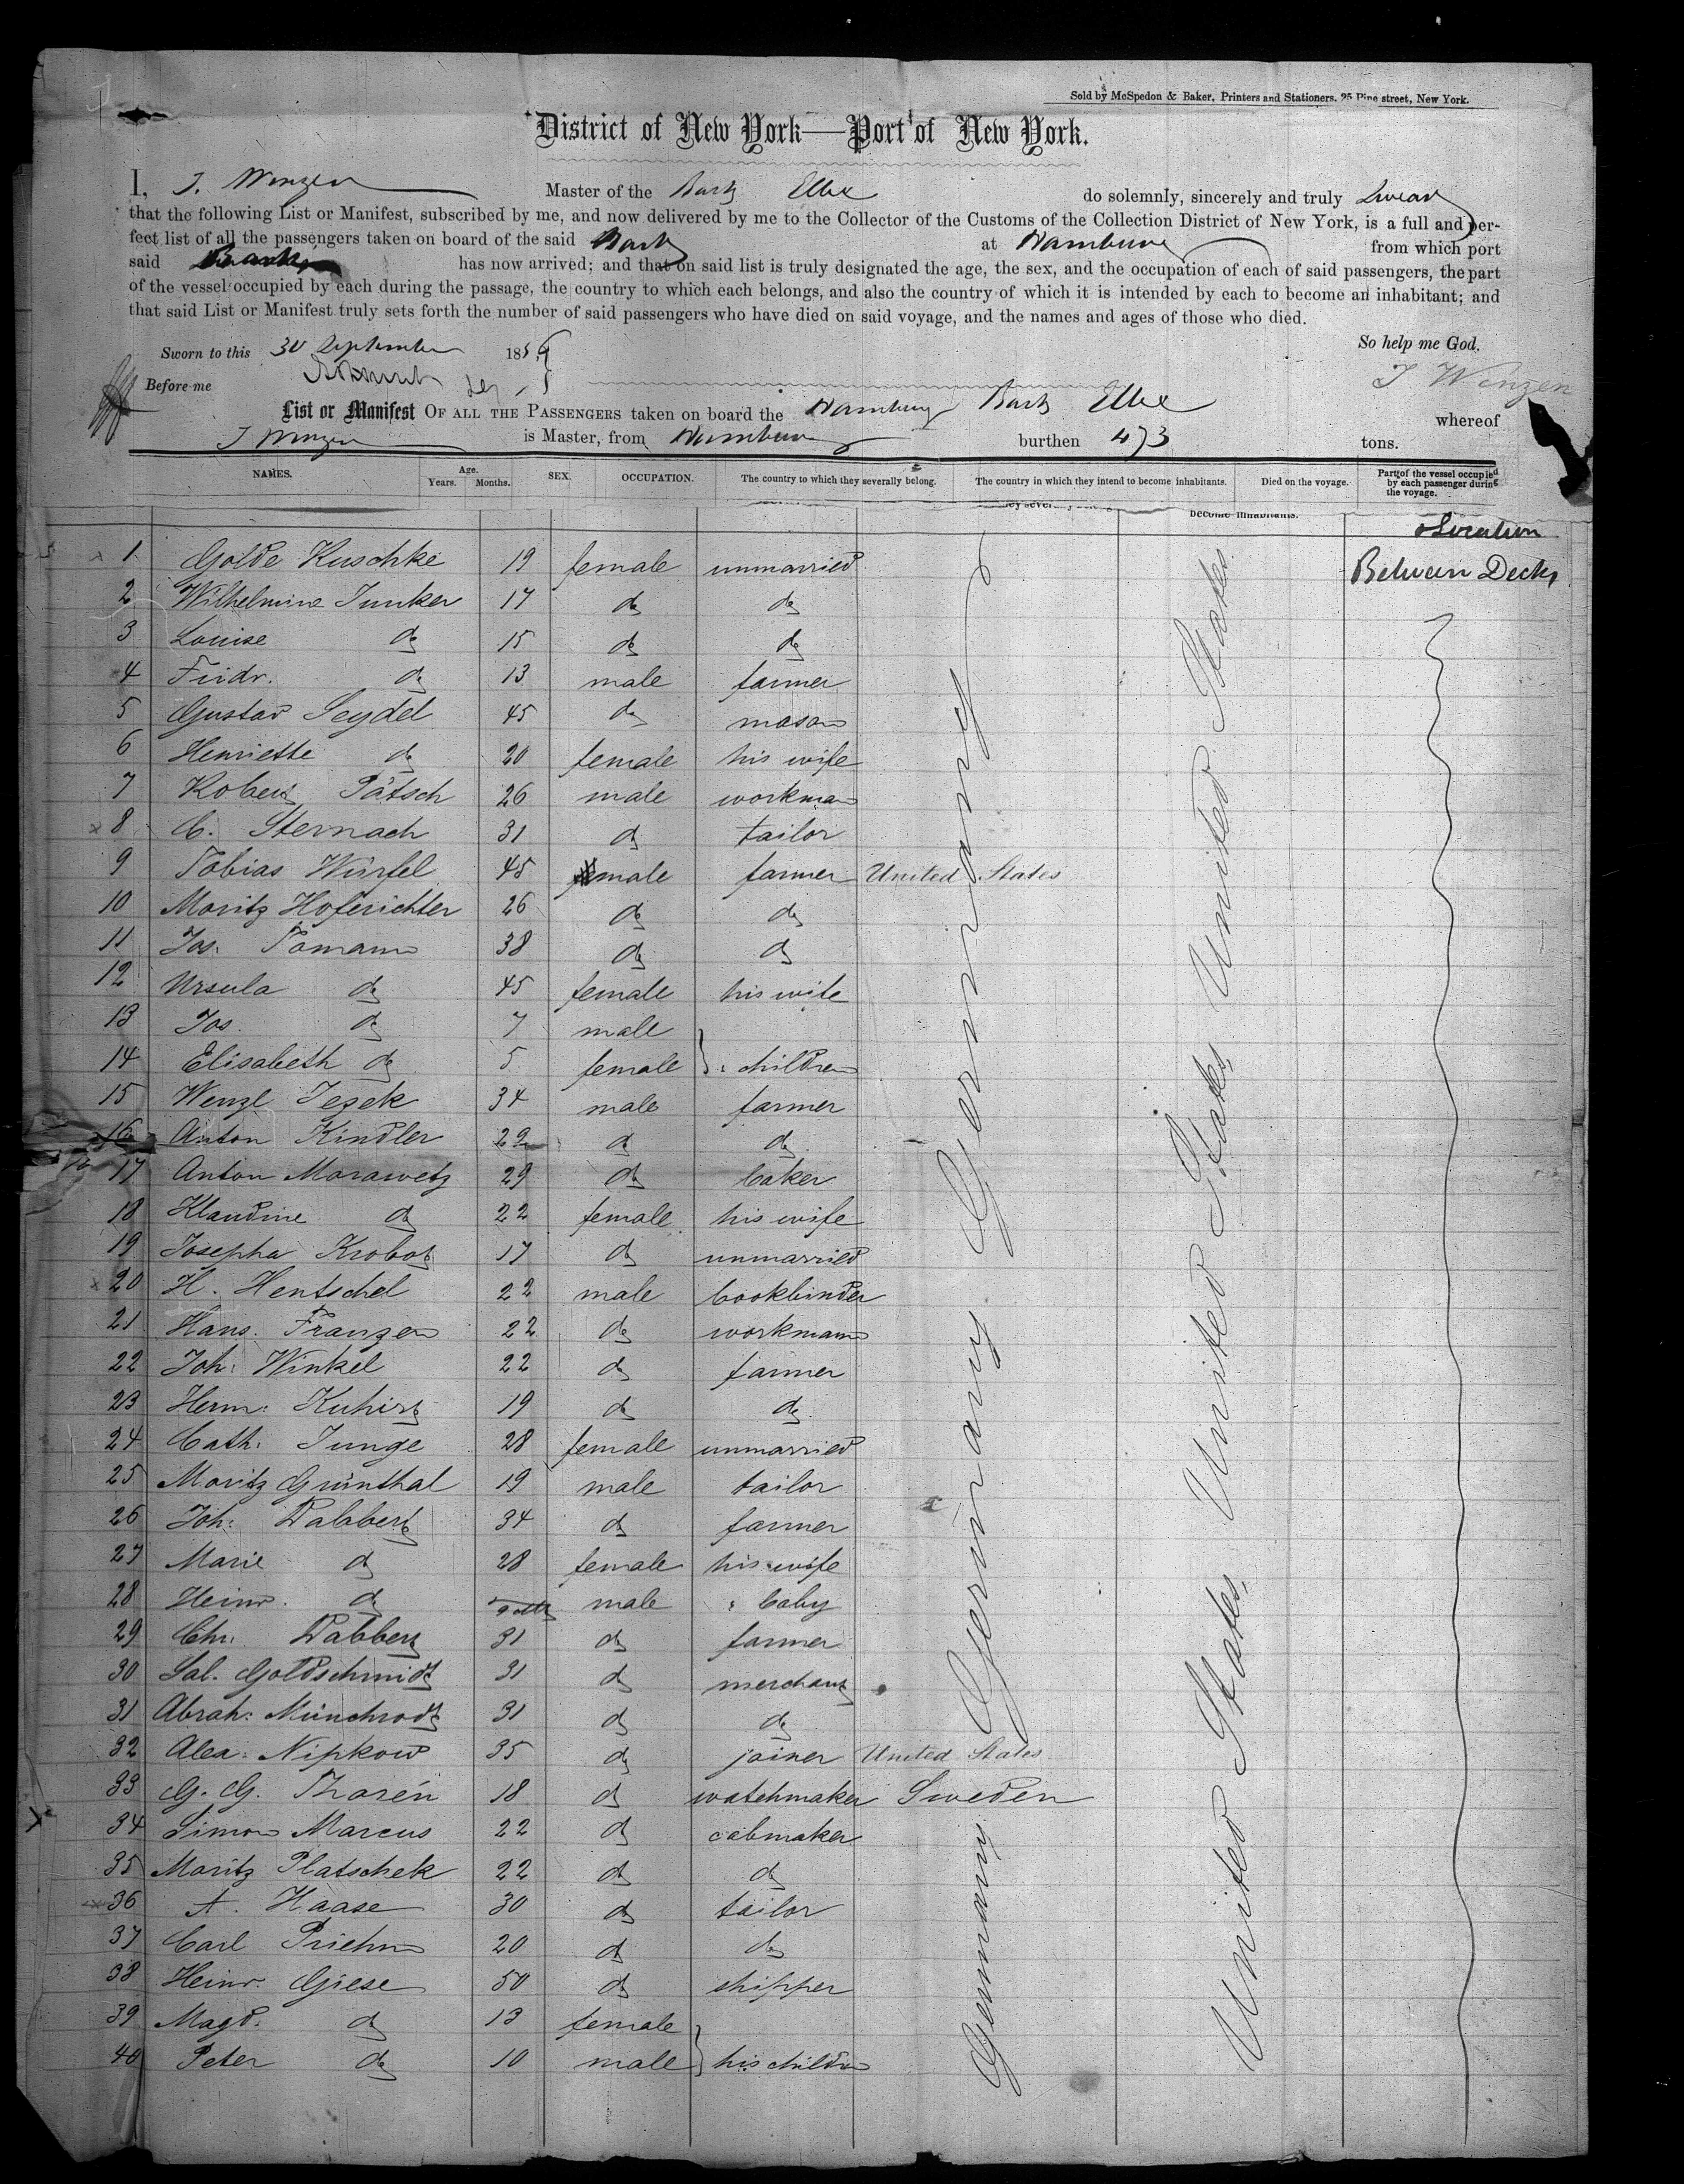 Sold by McSpedon & Baker, Printers and Stationers, 25 Pine street, New York.
District of New York—Port of New York.
I, J. Winzen Master of the Bark Elbe do solemnly, sincerely and truly swear
that the following List or Manifest, subscribed by me, and now delivered by me to the Collector of the Customs of the Collection District of New York, is a full and per-
fect list of all the passengers taken on board of the said Bark at Hamburg from which port
said Bark has now arrived; and that on said list is truly designated the age, the sex, and the occupation of each of said passengers, the part
of the vessel occupied by each during the passage, the country to which each belongs, and also the country of which it is intended by each to become an inhabitant; and
that said List or Manifest truly sets forth the number of said passengers who have died on said voyage, and the names and ages of those who died.
Sworn to this 30 September 1856 So help me God.
Before me J Winzen
List or Manifest OF ALL THE PASSENGERS taken on board the Hamburg Bark Elbe whereof
J Winzen is Master, from Hamburg burthen 473 tons.
NAMES. Age. Years. Months. SEX. OCCUPATION. The country to which they severally belong. The country in which they intend to become inhabitants. Died on the voyage. Part of the vessel occupied by each passenger during the voyage.
become inhabitants.
Location
1 Golde Kuschke 19 female unmarried Between Decks
2 Wilhelmine Junker 17 do do
3 Louise do 15 do do
4 Fridr. do 13 male farmer
5 Gustav Seydel 45 do mason
6 Henriette do 20 female his wife
7 Robert Pätsch 26 male workman
8 C. Sternach 31 do tailor
9 Tobias Würfel 45 male farmer United States
10 Moritz Hoferichter 26 do do
11 Jos: Tomann 38 do do
12 Ursula do 45 female his wife
13 Jos. do 7 male
14 Elisabeth do 5 female } children
15 Wenzl Jezek 34 male farmer
16 Anton Kindler 29 do do
17 Anton Morawetz 29 do baker
18 Klaudine do 22 female his wife
19 Josepha Krobot 17 do unmarried
20 H. Hentschel 22 male bookbinder
21 Hans. Franzen 22 do workmann
22 Joh: Winkel 22 do farmer
23 Herm: Kuhirt 19 do do
24 Cath: Junge 28 female unmarried
25 Moritz Grünthal 19 male tailor
26 Joh: Dabbert 34 do farmer
27 Marie do 28 female his wife
28 Heinr. do male baby
29 Chr: Dabbert 31 do farmer
30 Sal. Goldschmidt 31 do merchant
31 Abrah: Münchrodt 31 do do
32 Alex: Nipkow 35 do joiner United States
33 G. G. Thorén 18 do watchmaker Sweden
34 Simon Marcus 22 do cabmaker
35 Moritz Platschek 22 do do
36 A. Haase 30 do tailor
37 Carl Priehn 20 do do
38 Heinr. Giese 50 do shipper
39 Magd. do 13 female
40 Peter do 10 male } his children
Germany Germany Germany
United States United States United States United States